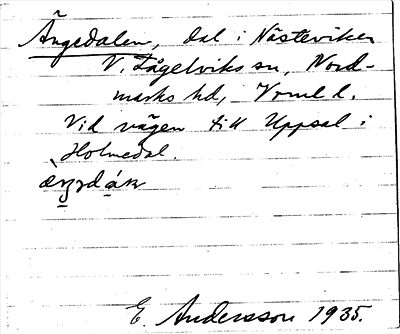 Ängedalen, dal i Nästeviken
V. Fågelviks sn, Nord-
marks hd, Vrml d.
Vid vägen till Uppsal i
Holmedal.
E. Andersson 1935.